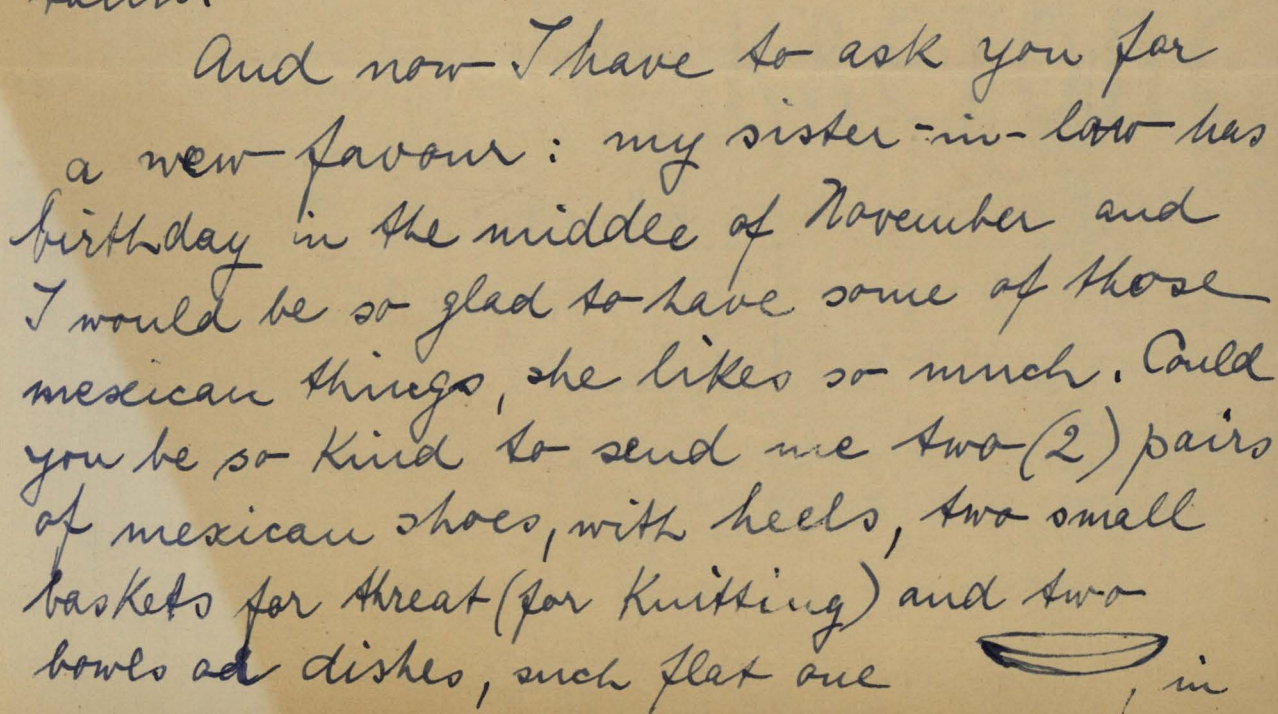 And now I have to ask you for
a new favour : my sister-in-law has
birthday in the middle of November and
I would be so glad to have some of those
mexican things, she likes so much. Could
you be so kind to send me two (2) pairs
of mexican shoes, with heels, two small
baskets for threat (for knitting) and two
bowls od dishes, such flat one , in